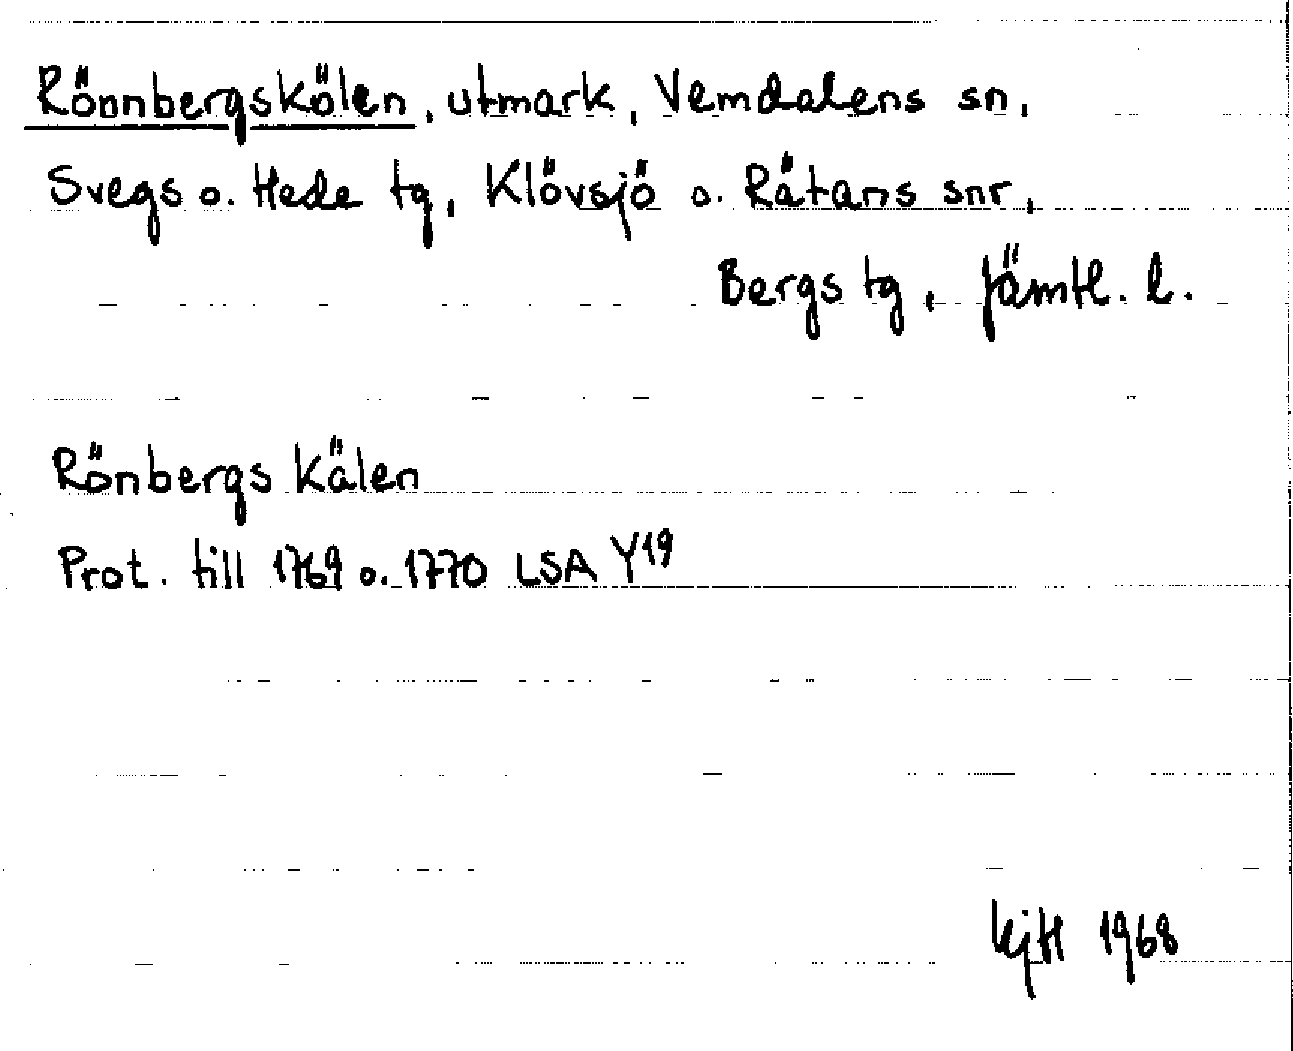 Rönnbergskölen, utmark, Vemdalens sn,
Svegs o. Hede tg, Klövsjö o. Rätans snr,
Bergs tg, Jämtl. l.
Rönbergs Kälen
Prot. till 1769 o. 1770 LSA Y19
1968